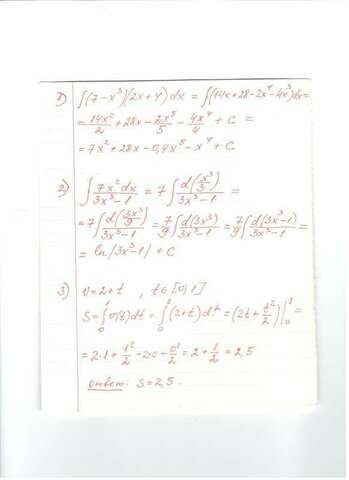 1) ∫(7-x³)(2x+4)dx = ∫(14x+28-2x⁴-4x³)dx=
= 14x²/2 + 28x - 2x⁵/5 - 4x⁴/4 + C =
= 7x² + 28x - 0,4x⁵ - x⁴ + C.
2) ∫ 7x²dx/(3x³-1) = 7∫ d(x³/3)/(3x³-1) =
= 7∫ d(3x³/9)/(3x³-1) = 7/9 ∫ d(3x³)/(3x³-1) = 7/9 ∫ d(3x³-1)/(3x³-1) =
= ln|3x³-1| + C
3) v=2+t , t∈[0,1]
S=∫₀¹v(t)dt=∫₀¹(2+t)dt=(2t+t²/2)|₀¹=
= 2·1 + 1²/2 - 2·0 - 0²/2 = 2 + 1/2 = 2,5
Ответ: S=2,5.